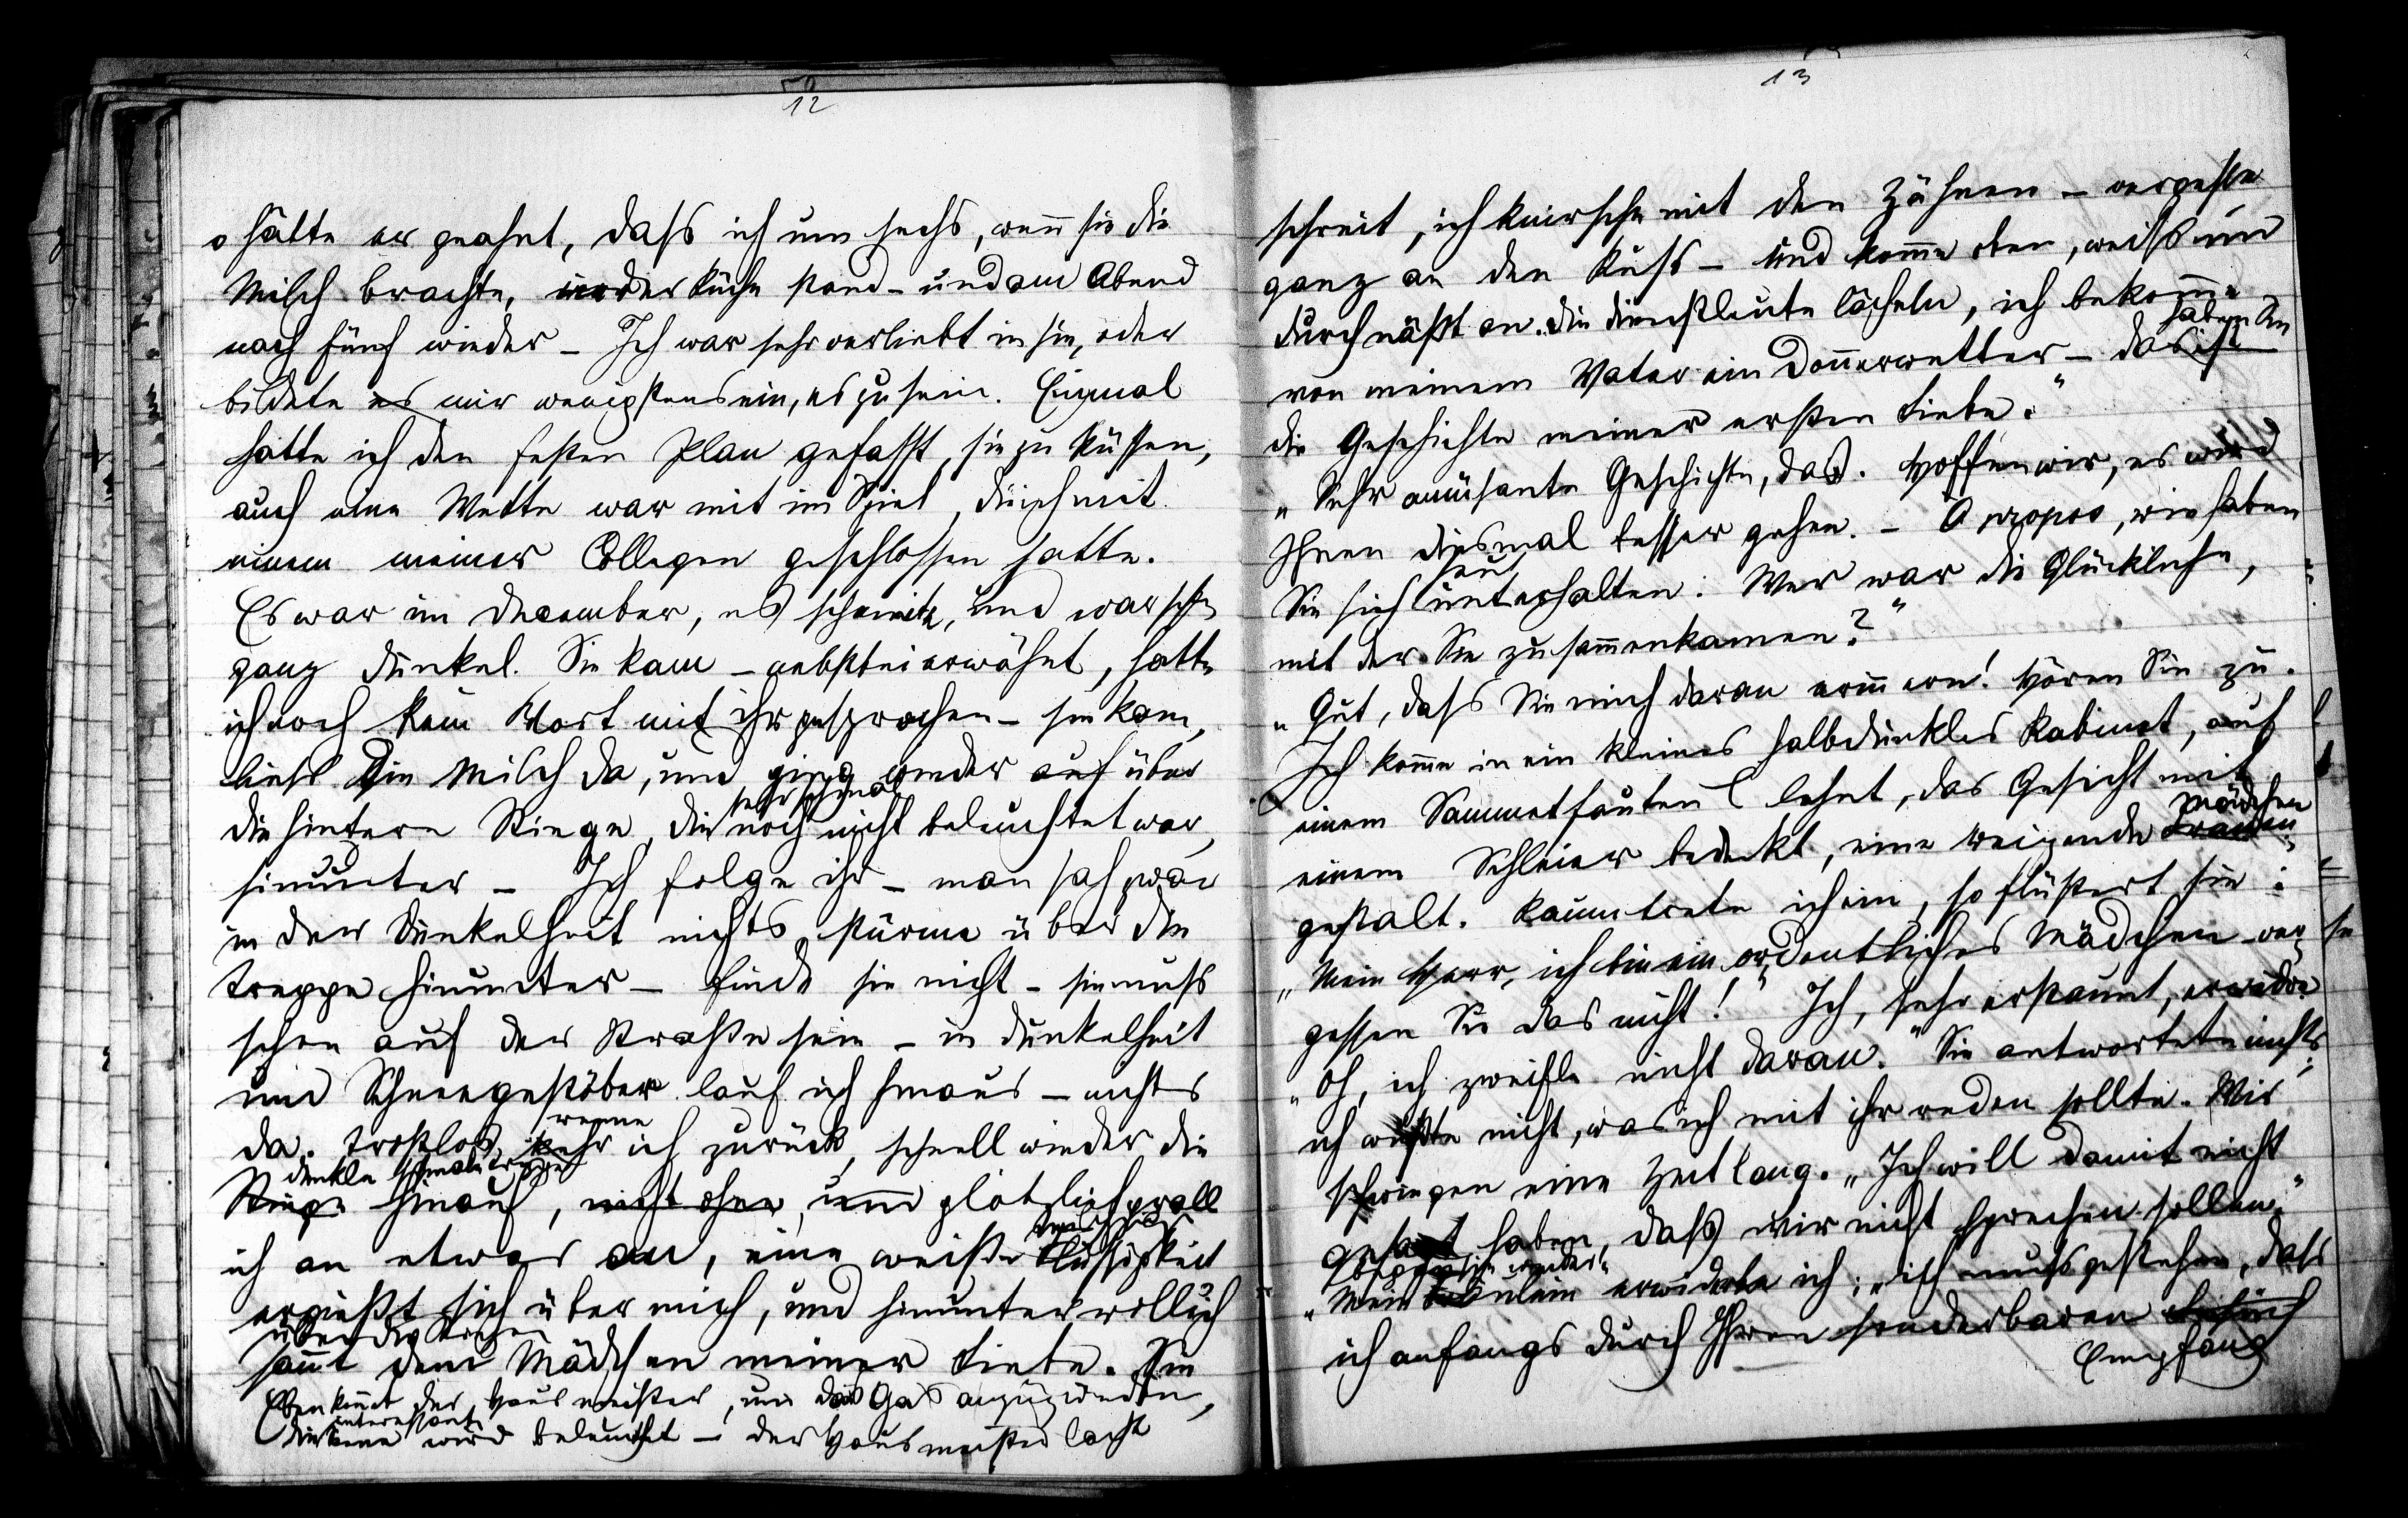 12
o hätte er geahnt, dass ich um sechs, wenn sie die
Milch brachte, in der Küche stand – und am Abend
nach fünf wieder – Ich war sehr verliebt in sie, oder
bildete es mir wenigstens ein, es zu sein. Einmal
hatte ich den festen Plan gefasst, sie zu küssen,
auch eine Wette war mit im Spiel, die ich mit
einem meiner Collegen geschlossen hatte.
Es war im December, es schneite, und war schon
ganz dunkel. Sie kam – nebstbei erwähnt, hatte
ich noch kein Wort mit ihr gesprochen – sie kam,
liess die Milch da, und ging wieder auf über
die hintere Stiege, die sehr schmal noch nicht beleuchtet war,
hinunter – Ich folge ihr – man sah zwar
in der Dunkelheit nichts, stürme über die
Treppe hinunter – finde sie nicht – sie muss
schon auf der Strasse sein – in Dunkelheit
und Schneegestöber lauf ich hinaus – nichts
da. Trostlos kehr renne ich zurück, schnell wieder die
dunkle schmale Treppe
Stiege hinauf, nicht ohne, und plötzlich prall
ich an etwas an, eine weiße Flüssigkeit
ergießt sich über mich, und hinunter roll ich
über die Treppen
sammt dem Mädchen meiner Liebe. Sie
Eben kommt der Hausmeister, um das Gas anzuzünden,
die interessante Scene wird beleuchtet – der Hausmeister lacht
13
schreit, ich knirsche mit den Zähnen – vergesse
ganz an den Kuss – und komme oben, weiß und
durchnäßt an. Die Dienstleute lächeln, ich bekomme
von meinem Vater ein Donnerwetter – das ist haben Sie
die Geschichte meiner ersten Liebe."
„Sehr amüsante Geschichte, das. Hoffen wir, es wird
Ihnen diesmal besser gehen. – Apropos, wie haben
Sie sich heut unterhalten: Wer war die Glückliche,
mit der Sie zusammenkamen?"
„Gut, dass Sie mich daran erinnern! Hören Sie zu.
Ich komme in ein kleines halbdunkles Kabinet, auf
einem Sammetfauteuil lehnt, das Gesicht mit
einem Schleier bedeckt, eine reizende Frauen Mädchen
gestalt. Kaum trete ich ein, so flüstert sie:
„Mein Herr, ich bin ein ordentliches Mädchen – ver
gessen Sie das nicht!" Ich, sehr erstaunt, erwidre
„Oh, ich zweifle nicht daran." Sie antwortete nichts;
ich wußte nicht, was ich mit ihr reden sollte. Wir
schwiegen eine Zeit lang. „Ich will damit nicht
gesagt haben, dass wir nicht sprechen sollen."
„Mein Fräulein erwiderte ich: „ich muss gestehen, dass
ich anfangs durch Ihren sonderbaren
Empfang